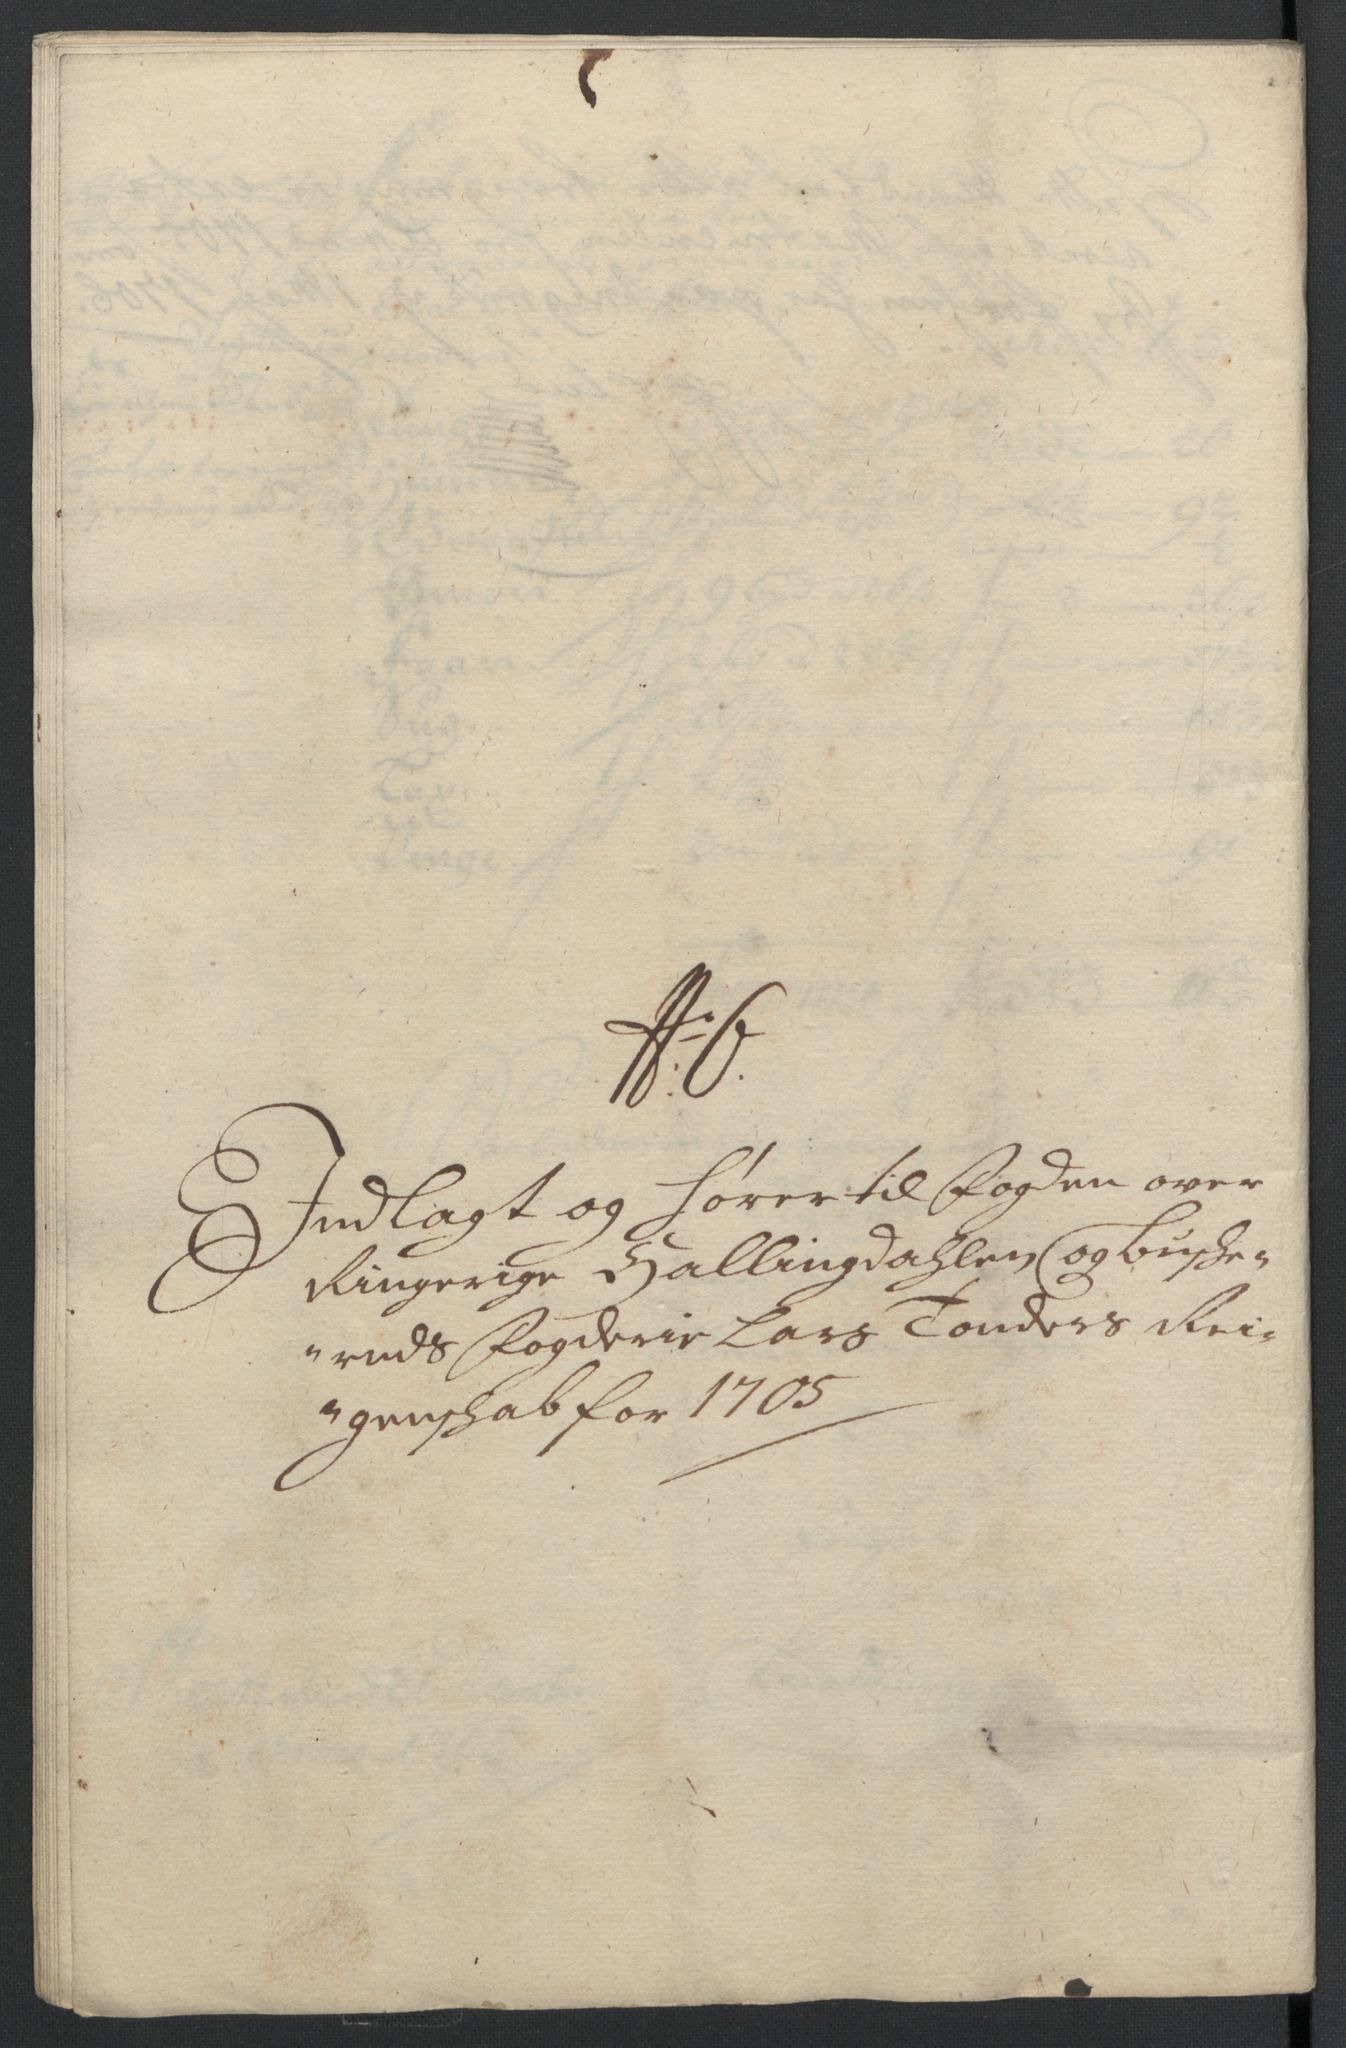 No: 6.
Indlagt og hører til Fogden over
Ringerige Hallingdahlen og buske„
„ruds Fogderie Lars Tonders Rei„
„genskab for 1705